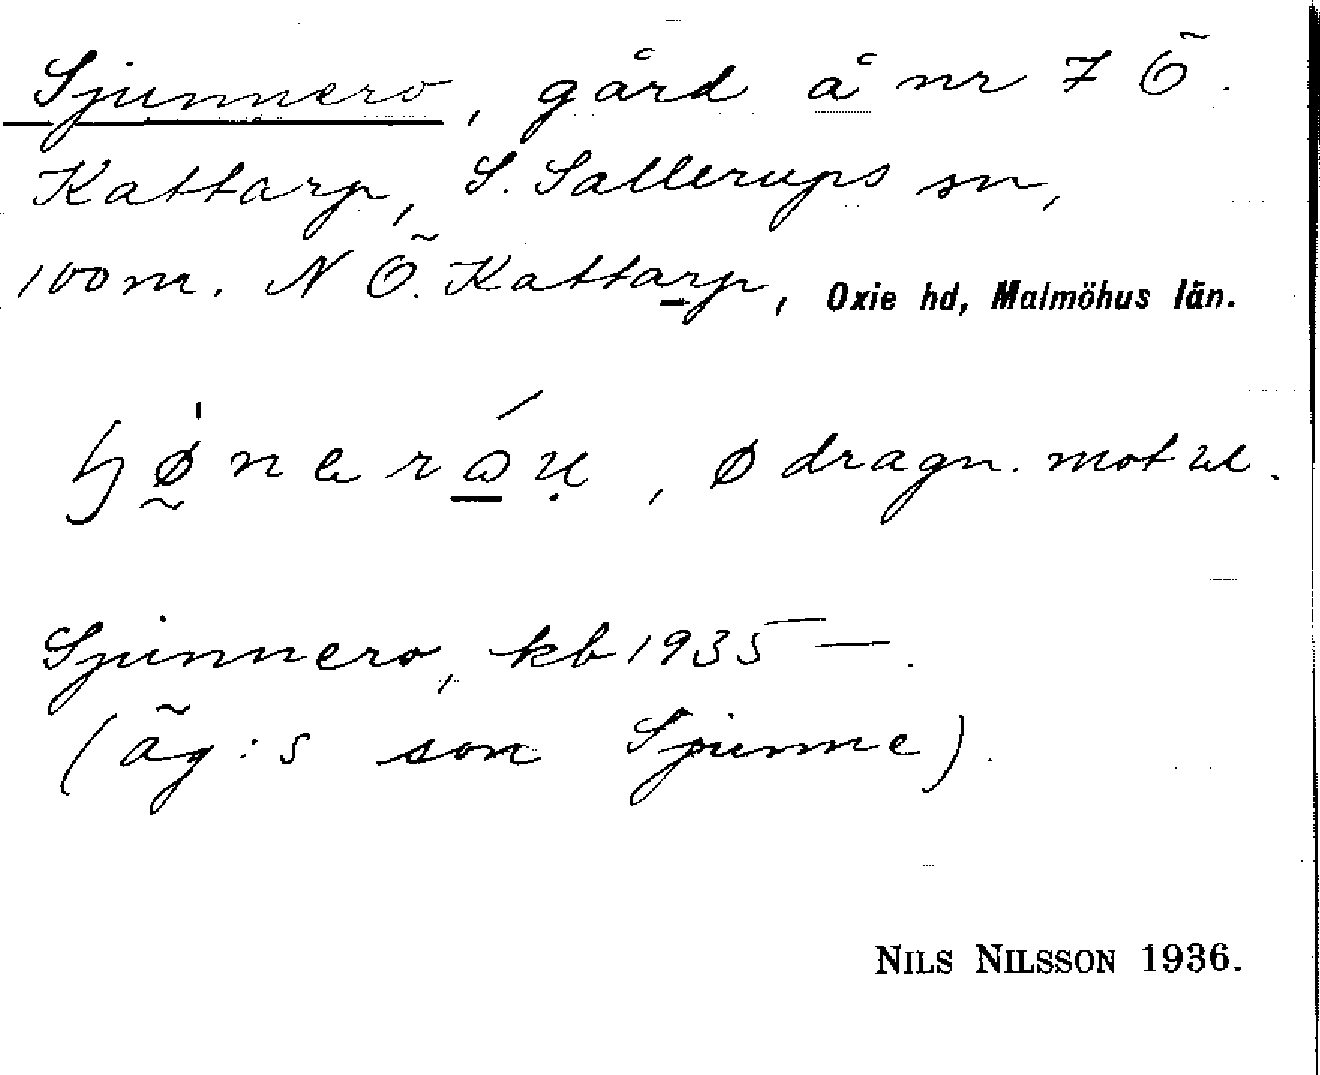 Sjunnero, gård å nr 7 Ö.
Kattarp, S. Sallerups sn,
100 m. N Ö. Kattarp, Oxie hd, Malmöhus län.
, ø dragn. mot u.
Sjunnero, kb 1935 —.
(äg:s son Sjunne).
NILS NILSSON 1936.